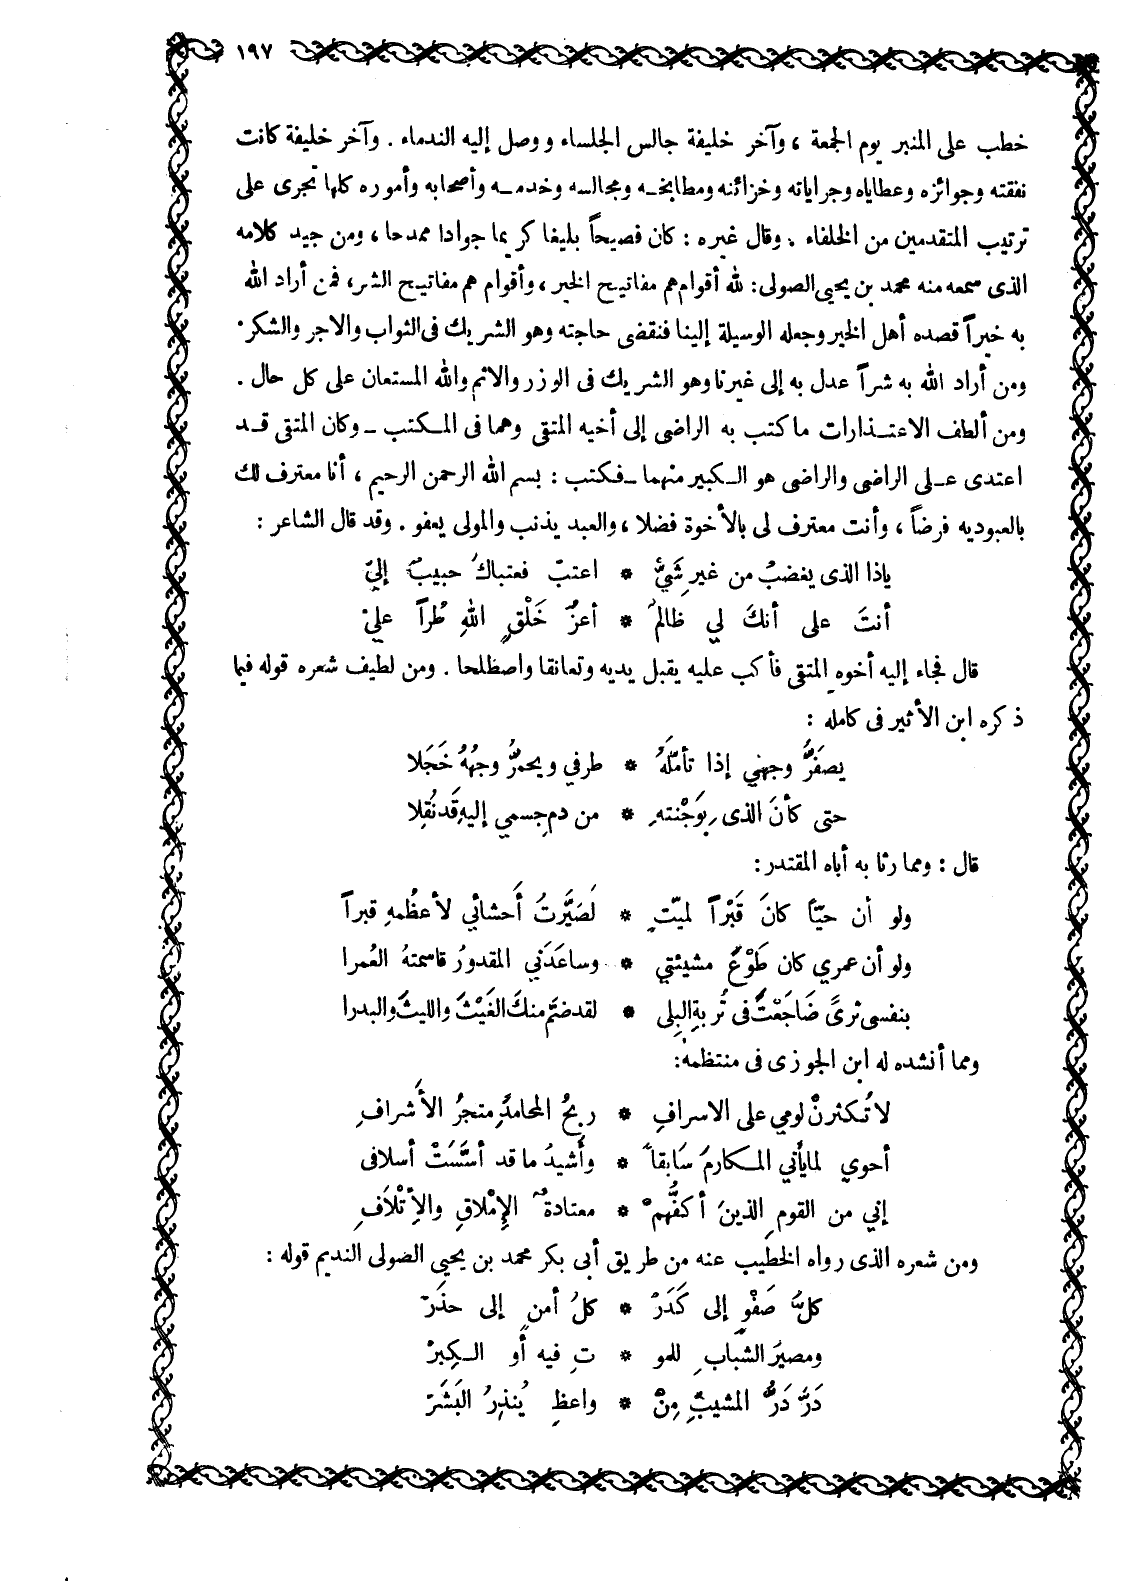 ١٩٧
خطب على المنبر يوم الجمعة ، وآخر خليفة جالس الجلساء ووصل إليه الندماء . وآخر خليفة كانت
نفقته وجوائزه وعطاياه وجراياته وخزائنه ومطابخـه ومجالسه وخدمـه وأصحابه وأموره كلها تجرى على
ترتيب المتقدمين من الخلفاء . وقال غيره : كان فصيحاً بليغا كريما جوادا ممدحا ، ومن جيد كلامه
الذى سمعه منه محمد بن يحيى الصولى: لله أقوام هم مفاتيح الخير ، وأقوام هم مفاتيح الشر، فمن أراد الله
به خيراً قصده أهل الخير وجعله الوسيلة إلينا فنقضى حاجته وهو الشريك فى الثواب والاجر والشكر.
ومن أراد الله به شراً عدل به إلى غيرنا وهو الشريك فى الوزر والاثم والله المستعان على كل حال .
ومن ألطف الاعتـذارات ما كتب به الراضى إلى أخيه المتقى وهما فى المـكتب ـ وكان المتقى قـد
اعتدى عـلى الراضى والراضى هو الـكبير منهما ـ فـكتب : بسم الله الرحمن الرحيم ، أنا معترف لك
بالعبوديه فرضاً ، وأنت معترف لى بالأخوة فضلا ، والعبد يذنب والمولى يعفو . وقد قال الشاعر :
ياذا الذى يغضبُ من غيرِ شَيْء * اعتبْ فعتباكَ حبيبٌ إليّ
أنتَ على أنكَ لي ظالمٌ * أعزُّ خَلْقِ اللهِ طُراً عليّ
قال فجاء إليه أخوه المتقى فأكب عليه يقبل يديه وتعانقا واصطلحا . ومن لطيف شعره قوله فيما
ذكره ابن الأثير فى كامله :
يصفَرُّ وجهي إذا تأمّلَهُ * طرفي ويحمرُّ وجهُهُ خَجَلا
حتى كأنَ الذى بِوَجْنتهِ * من دمِ جسمي إليهِ قَد نُقلا
قال : ومما رثا به أباه المقتدر :
ولو أن حيّاً كانَ قَبْراً لميّتٍ * لَصَيَّرتُ أَحشائي لأعظُمهِ قبراً
ولو أن عمري كان طَوْعَ مشيئتي * وساعَدَني المقدورُ قاسمتهُ العُمرا
بنفسى ثرىً ضَاجَعْتَ فى تُربةِ البِلى * لقد ضمّ منكَ الغَيْثَ والليثَ والبدرا
ومما أنشده له ابن الجوزى فى منتظمه:
لا تُكثرنْ لومي على الاسرافِ * ربحُ المحامدِ متجرُ الأشرافِ
أحوي لما يأتي المـكارمَ سَابقاً * وأَشيدُ ما قد أسّسَتْ أسلافى
إني من القومِ الذينَ أكفُّهمْ * معتادةُ الإِمْلاقِ والأِتْلاَفِ
ومن شعره الذى رواه الخطيب عنه من طريق أبى بكر محمد بن يحيى الصولى النديم قوله :
كلُّ صَفْوٍ إلى كَدَرْ * كلُ أمنٍ إلى حذَرْ
ومصيرُ الشبابِ للمو * تِ فيه أو الـكِبرْ
دَرُّ دَرُّ المشيبِ مِنْ * واعظٍ يُنذِرُ البَشَرْ